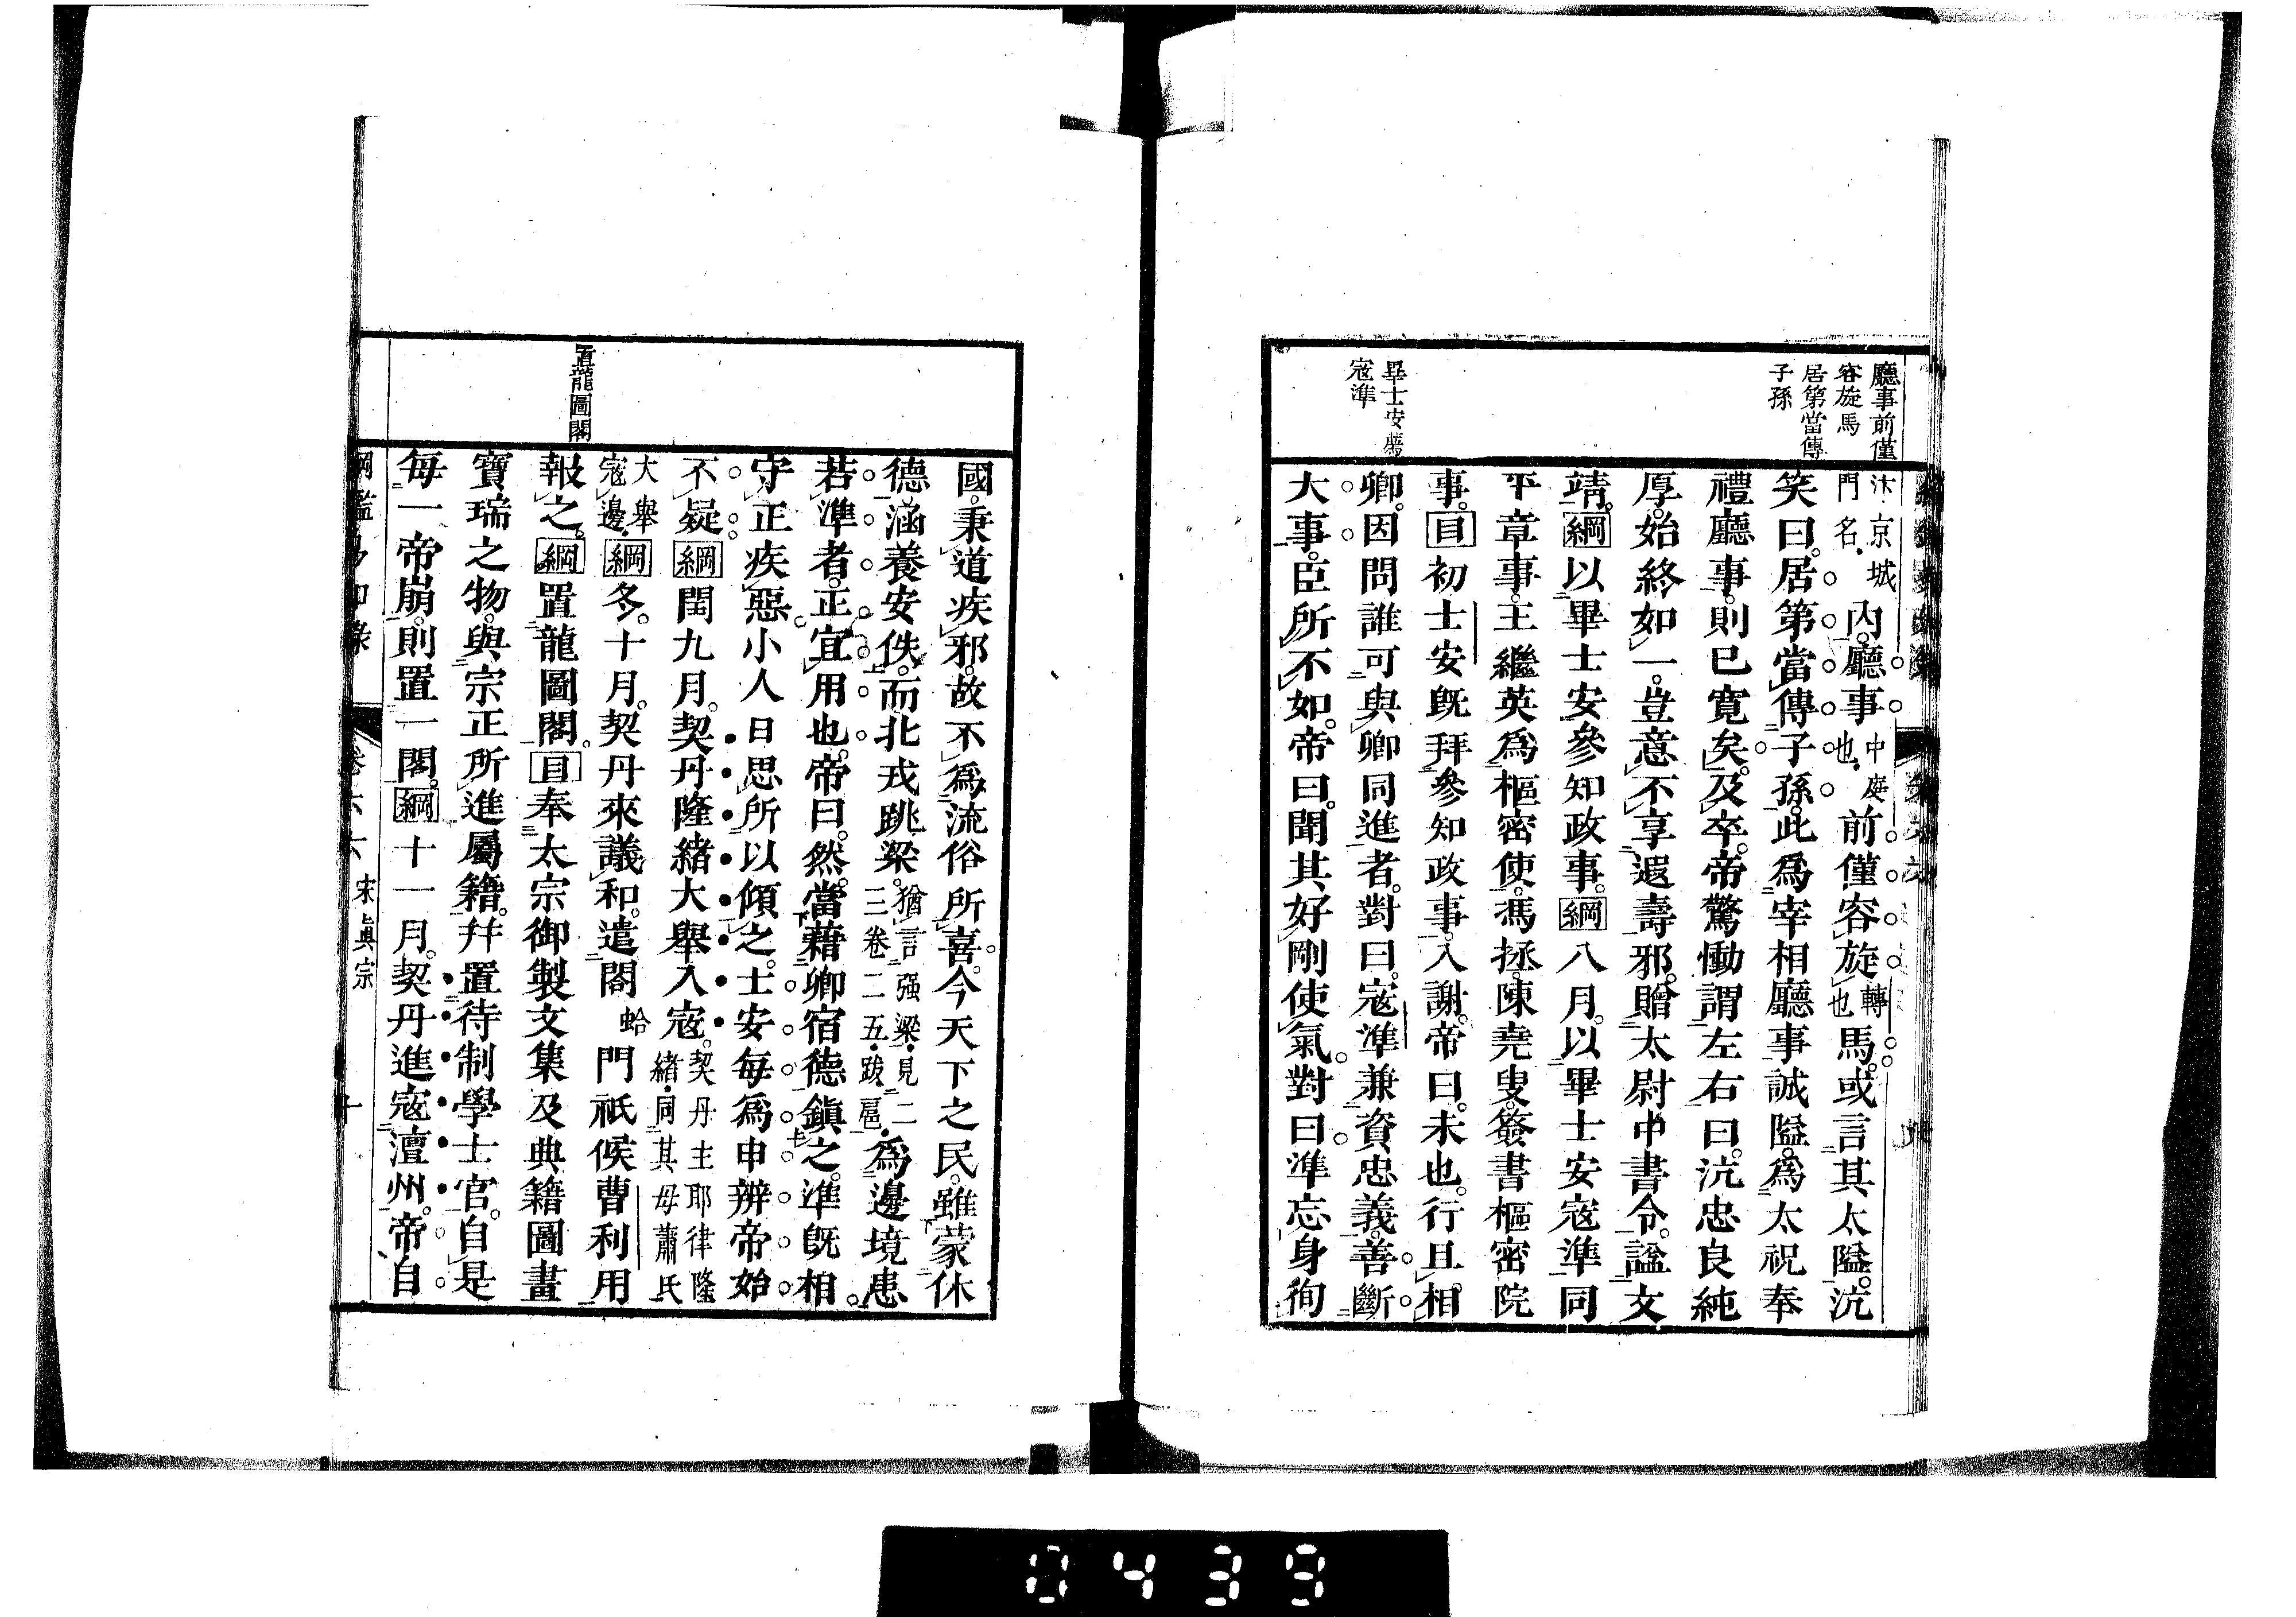 廳事前僅
容旋馬
居第當傳
子孫
畢士安薦
寇準
汴京城
門名
內。廳事
中庭
也
前僅容旋
轉
也
馬。或言其太隘。沆
笑曰。居第當傳子孫。此爲宰相廳事誠隘。爲太祝奉
禮廳事。則已寬矣。及卒。帝驚慟謂左右曰。沆忠良純
厚。始終如一。豈意不享遐壽邪。贈太尉中書令。諡文
靖。綱以畢士安參知政事。綱八月。以畢士安寇準同
平章事。王繼英爲樞密使。馮拯。陳堯叟。簽書樞密院
事。目初士安旣拜參知政事。入謝。帝曰。未也。行且相
卿。因問誰可與卿同進者。對曰。寇準兼資忠義。善斷
大事。臣所不如。帝曰。聞其好剛使氣。對曰。準忘身徇
置龍圖閣
國。秉道疾邪。故不爲流俗所喜。今天下之民。雖蒙休
德涵養安佚。而北戎跳梁。
猶言强梁。見二
三卷二五。跋扈。
爲邊境患
若準者。正宜用也。帝曰。然。當藉卿宿德鎭之。準旣相。
守正疾惡。小人日思所以傾之。士安每爲申辨。帝始
不疑。綱閏九月。契丹隆緖大舉入寇。
契丹主耶律隆
緖。同其母蕭氏
大舉
寇邊。
綱冬。十月。契丹來議和。遣閤
蛤
門祇候曹利用
報之。綱置龍圖閣。目奉太宗御製文集及典籍圖畫
寶瑞之物。與宗正所進屬籍。幷置待制學士官。自是
每一帝崩。則置一閣。綱十一月。契丹進寇澶州。帝自
綱鑑易知錄
卷六六
宋眞宗
十
0439